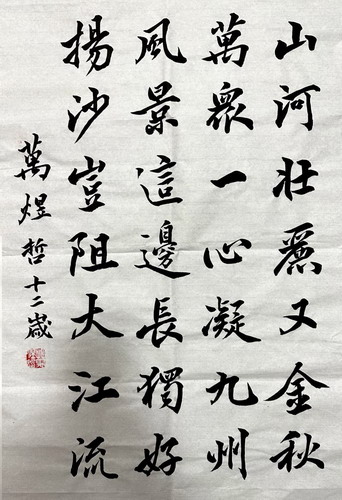 山河壯麗又金秋
萬衆一心凝九州
風景這邊長獨好
揚沙豈阻大江流
萬煜哲十二歲